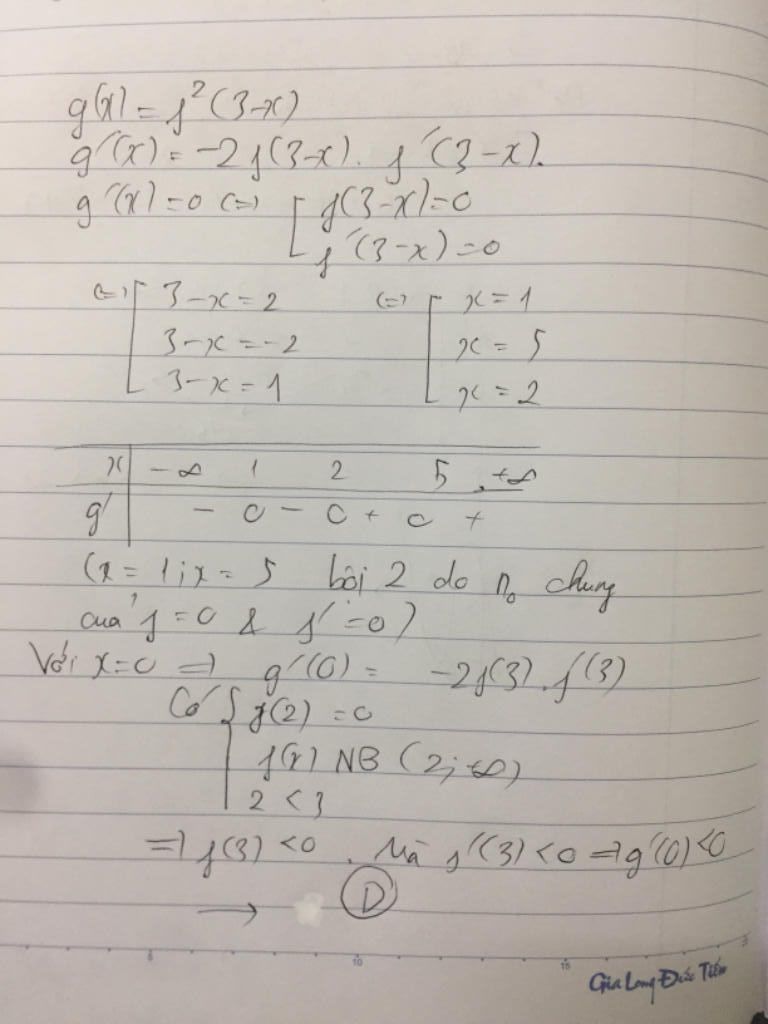 g(x) = f²(3-x)
g'(x) = -2f(3-x). f'(3-x).
g'(x) = 0 (=) [ f(3-x) = 0
f'(3-x) = 0
(=) [ 3-x = 2 (=) [ x = 1
3-x = -2 x = 5
3-x = 1 x = 2
x | -∞ 1 2 5 +∞
g' | - 0 - 0 + 0 +
(x = 1; x = 5 bội 2 do n₀ chung
của f = 0 & f' = 0)
Với x=0 => g'(0) = -2f(3).f'(3)
Có { f(2) = 0
f(x) NB (2; +∞)
2 < 3
=> f(3) < 0. Mà f'(3) < 0 => g'(0) < 0
→ D
5 10 15
Gia Long Đức Tiến